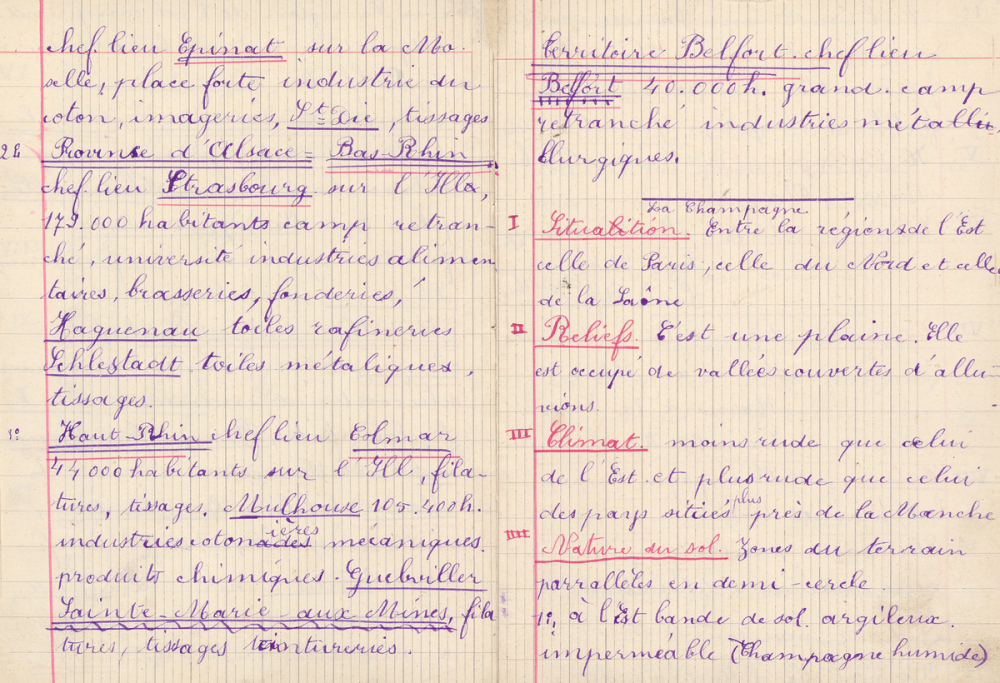 chef. lieu Epinat sur la Mo-
selle, place forte industrie du
coton, imageries, St Dié, tissages
2e Province d'Alsace = Bas-Rhin
chef. lieu Strasbourg sur l'Ill,
179.000 habitants camp retran-
ché, université industries alimen
taires, brasseries, fonderies,
Haguenau toiles rafineries
Schlestadt toiles métaliques,
tissages.
1º Haut-Rhin chef lieu Colmar
44000 habitants sur l'Ill, fila-
tures, tissages. Mulhouse 105.400h.
industries cotonnières mécaniques.
produits chimiques. Guebviller
Sainte-Marie aux Mines, fila
tures, tissages teintureries.
territoire Belfort. chef lieu
Belfort 40.000h. grand. camp
retranché industries métalli
llurgiques.
La Champagne
I Situation. Entre la région de l'Est
celle de Paris, celle du Nord et celle
de la Saône
II Reliefs. C'est une plaine. Elle
est occupé de vallées couvertes d'allu-
vions.
III Climat. moins rude que celui
de l'Est. et plus rude que celui
des pays situés plus près de la Manche
IIII Nature du sol. Zones du terrain
parralléles en demi-cercle.
1º, à l'Est bande de sol. argileux.
imperméable (Champagne humide)